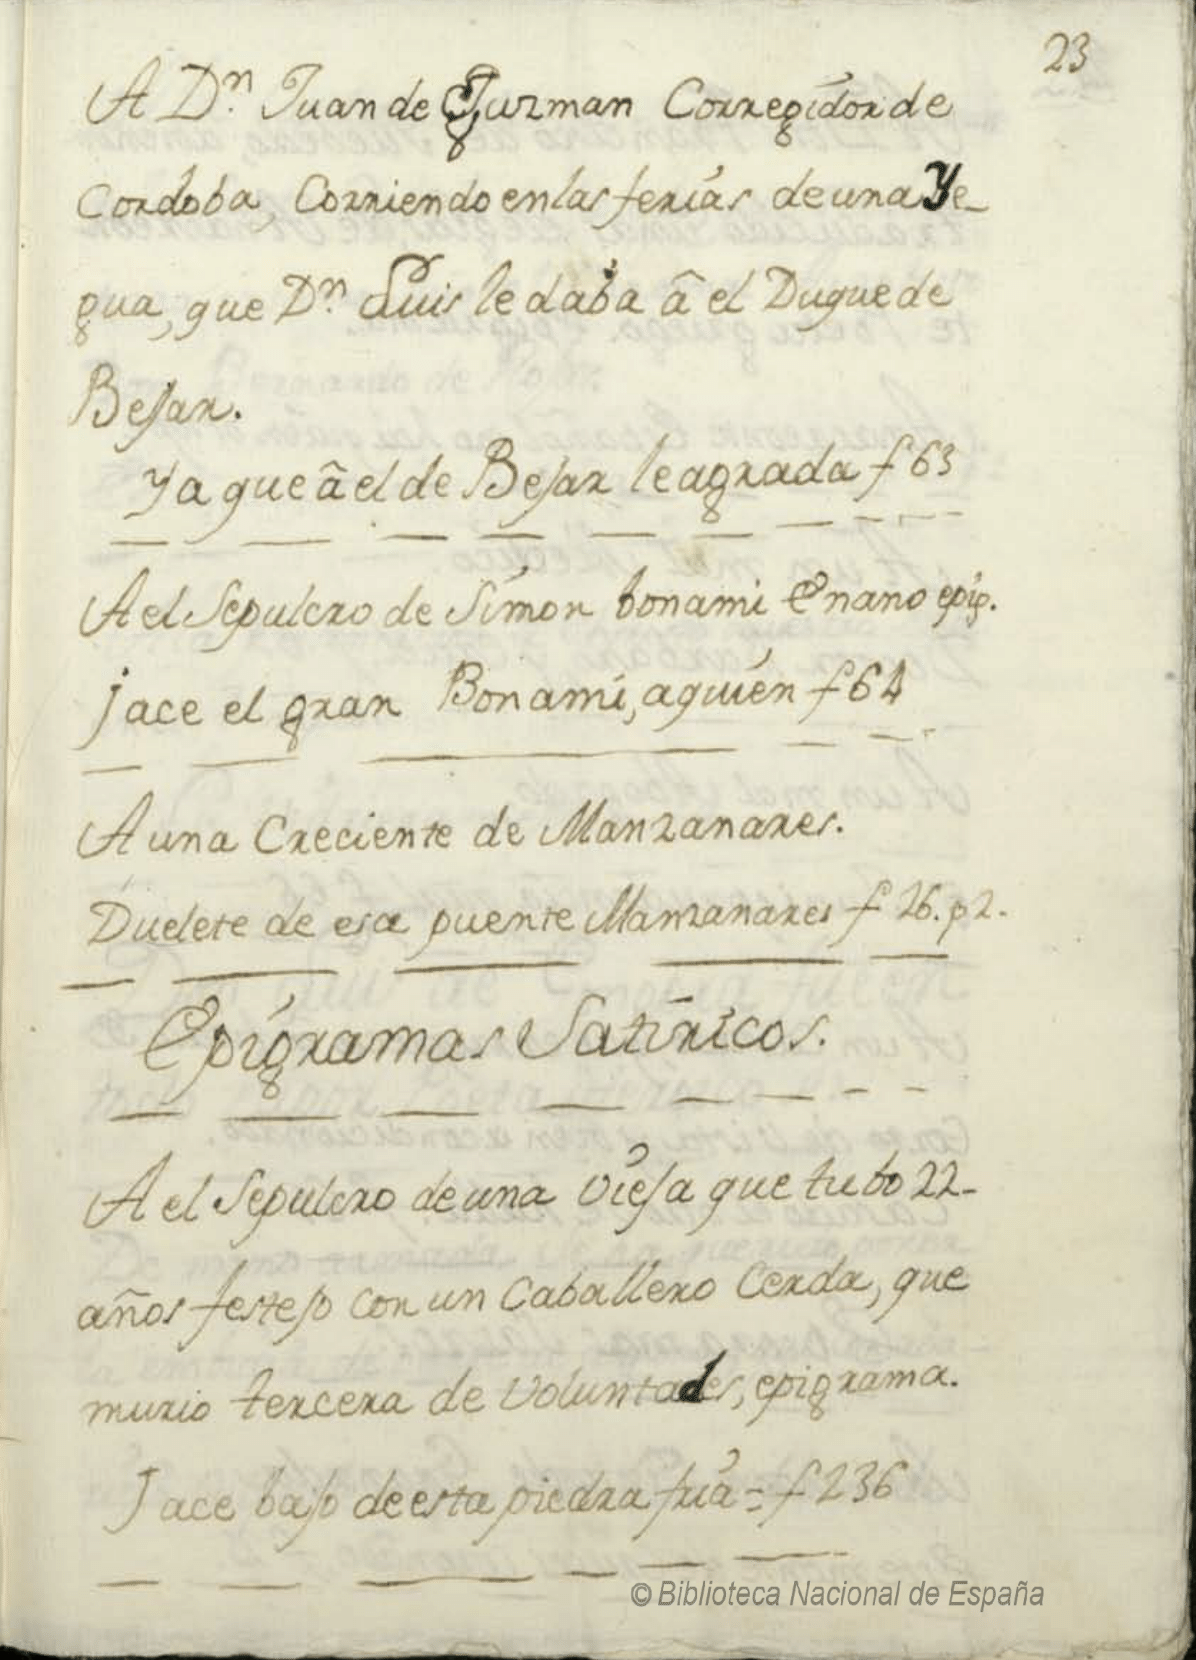 23
A Dn. Juan de Guzman Corregidor de
Cordoba, Corriendo en las ferias de una Ye-
gua, que Dn. Luis le daba â el Duque de
Bejar.
Ya que â el de Bejar le agrada f 63
A el Sepulcro de Simon bonami Enano epig.
jace el gran Bonami, a quien f 64
A una Creciente de Manzanares.
Duelete de esa puente Manzanares f 26. p 2.
Epigramas Satiricos.
A el Sepulcro de una Vieja que tubo 22-
años festejo con un Caballero Cerda, que
murio tercera de Voluntades, epigrama.
Jace bajo de esta piedra fria = f 236
© Biblioteca Nacional de España